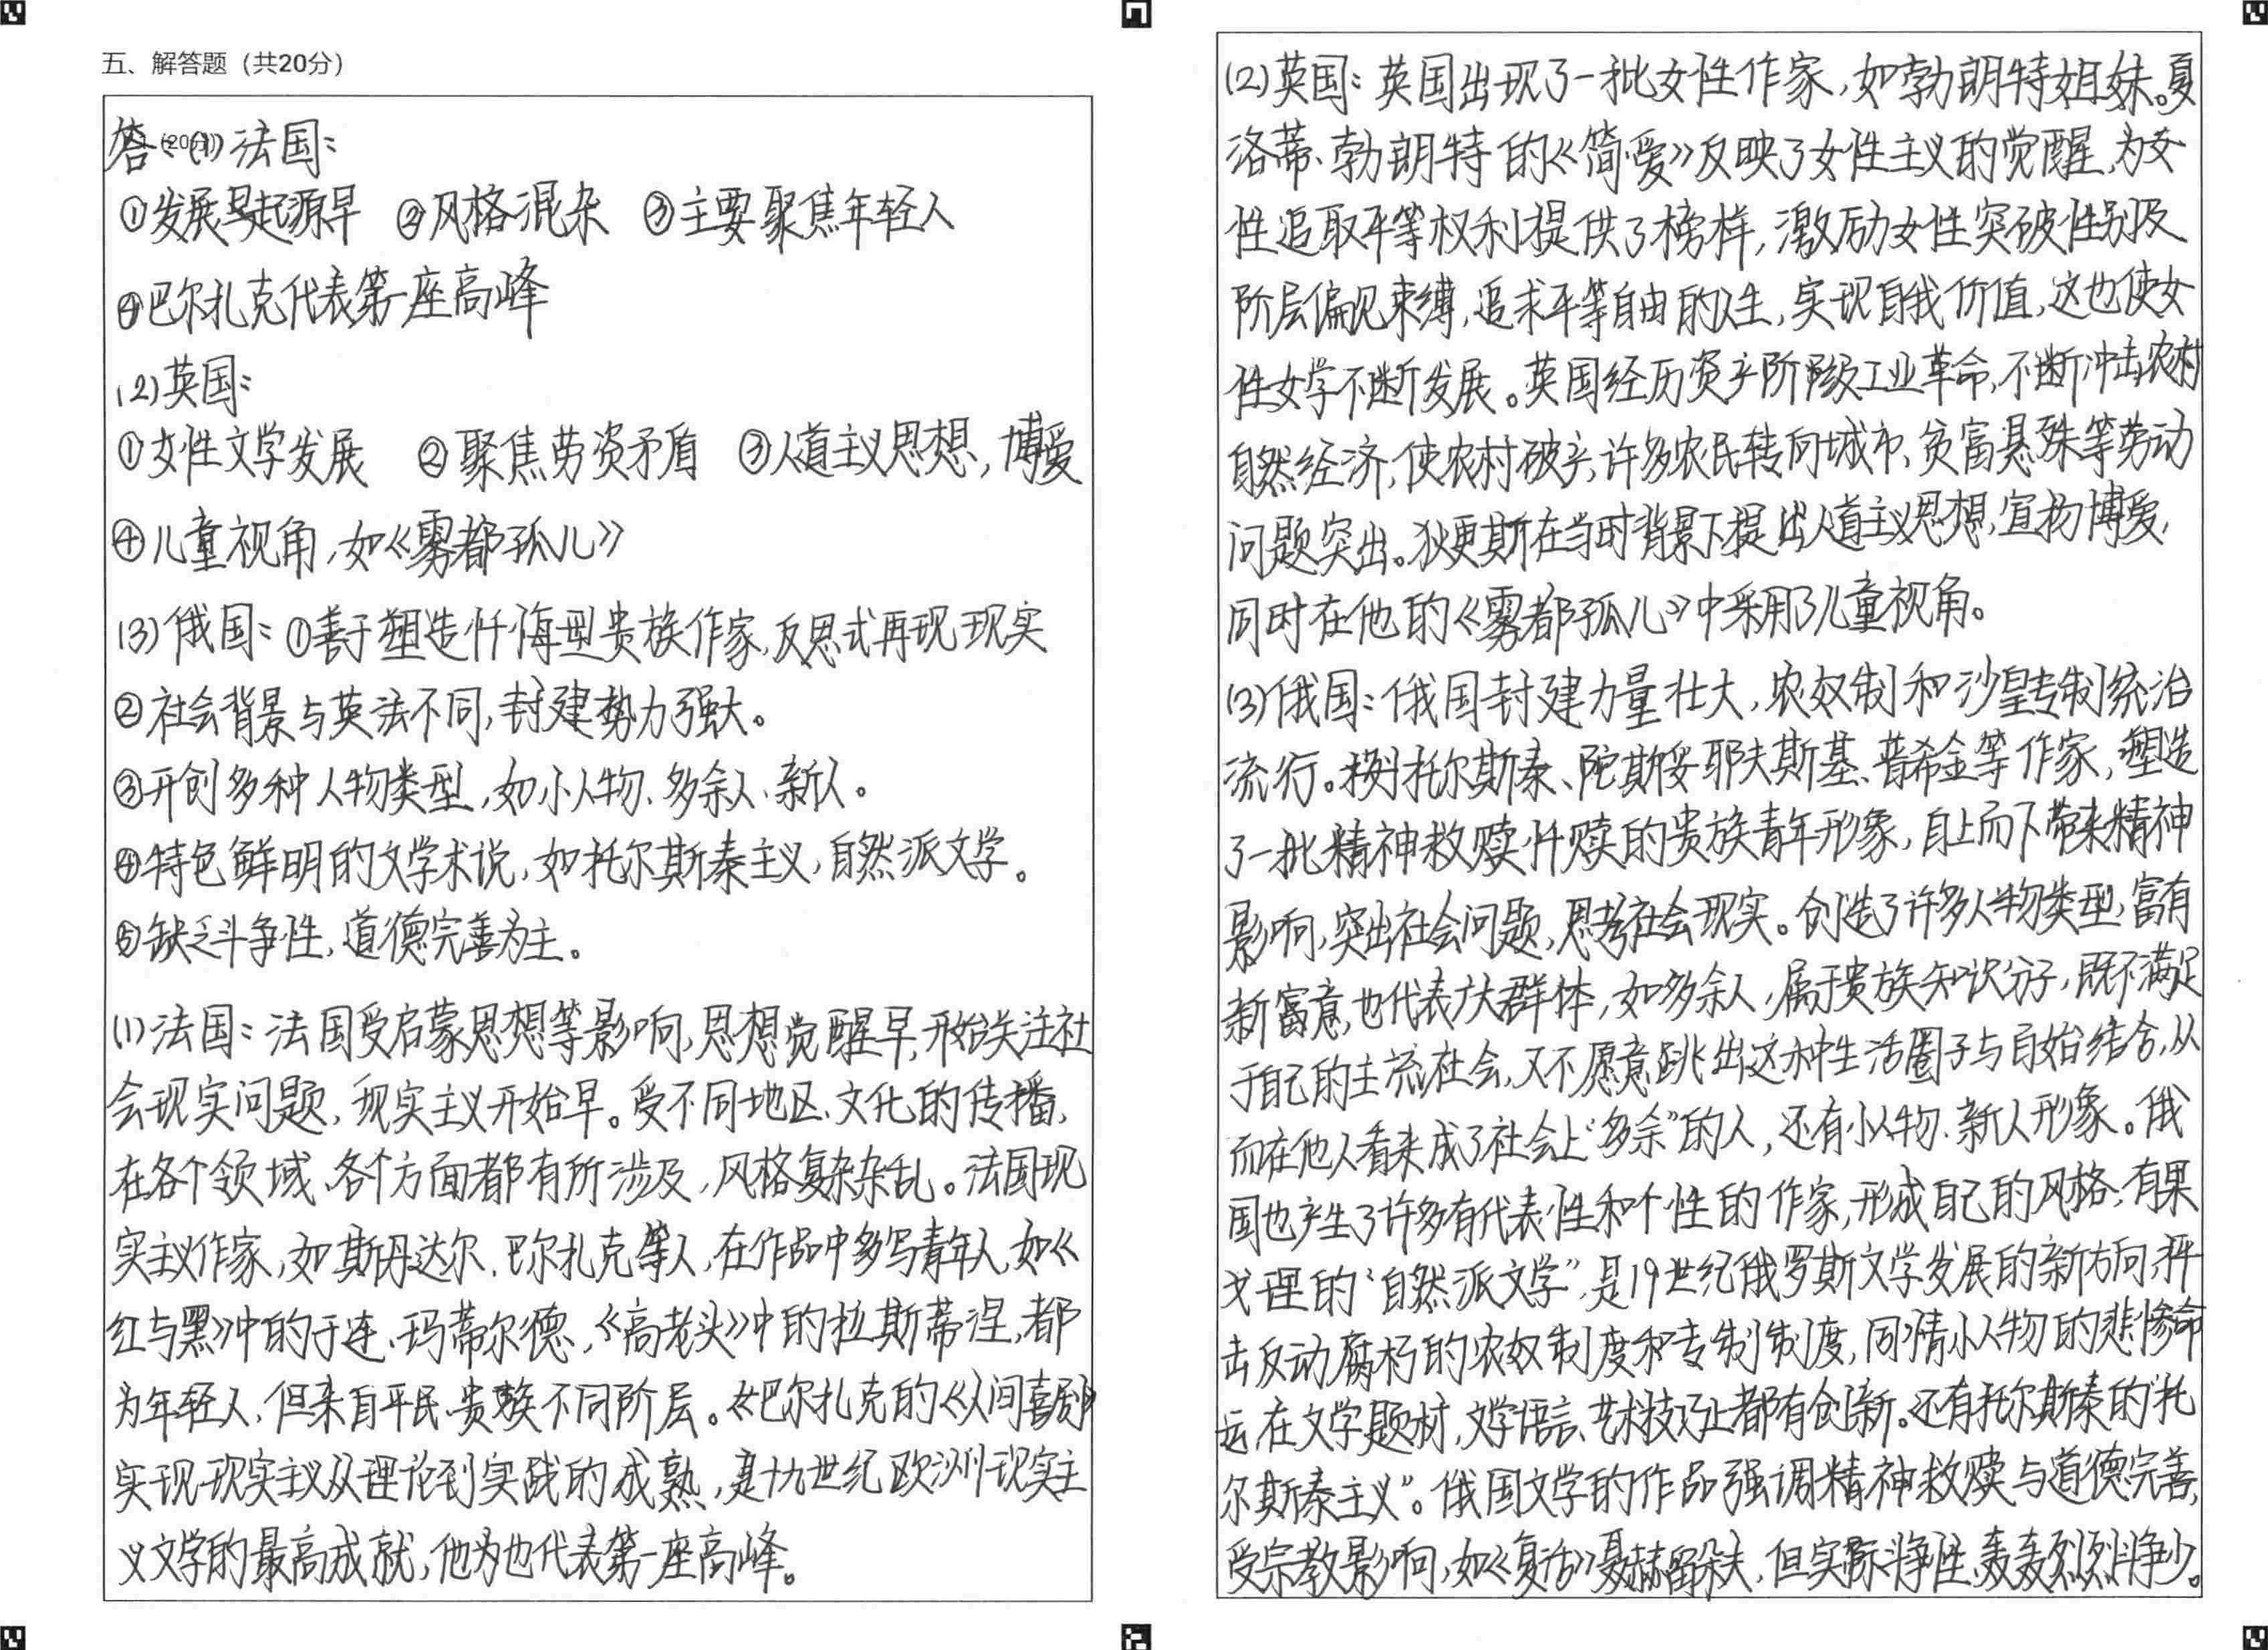 五、解答题（共20分）
答：(1)法国：
①发展早起源早 ②风格混杂 ③主要聚焦年轻人
④巴尔扎克代表第一座高峰
(2)英国：
①女性文学发展 ②聚焦劳资矛盾 ③人道主义思想，博爱
④儿童视角，如《雾都孤儿》
(3)俄国：①善于塑造忏悔型贵族作家，反思式再现现实
②社会背景与英法不同，封建势力强大。
③开创多种人物类型，如小人物、多余人、新人。
④特色鲜明的文学术说，如托尔斯泰主义，自然派文学。
⑤缺乏斗争性，道德完善为主。
(1)法国：法国受启蒙思想等影响，思想觉醒早，开始关注社
会现实问题，现实主义开始早。受不同地区、文化的传播，
在各个领域、各个方面都有所涉及，风格复杂杂乱。法国现
实主义作家，如斯丹达尔、巴尔扎克等人，在作品中多写青年人，如《
红与黑》中的于连、玛蒂尔德，《高老头》中的拉斯蒂涅，都
为年轻人，但来自平民、贵族不同阶层。巴尔扎克的《人间喜剧》
实现现实主义从理论到实践的成熟，是十九世纪欧洲现实主
义文学的最高成就，他为也代表第一座高峰。
(2)英国：英国出现了一批女性作家，如勃朗特姐妹。夏
洛蒂·勃朗特的《简·爱》反映了女性主义的觉醒，为女
性追取平等权利提供了榜样，激励女性突破性别及
阶层偏见束缚，追求平等自由的人生，实现自我价值，这也使女
性女学不断发展。英国经历资产阶级工业革命，不断冲击农村
自然经济，使农村破产，许多农民转向城市，贫富悬殊等劳动
问题突出。狄更斯在当时背景下提出人道主义思想，宣扬博爱，
同时在他的《雾都孤儿》中采用了儿童视角。
(3)俄国：俄国封建力量壮大，农奴制和沙皇专制统治
流行。托尔斯泰、陀斯妥耶夫斯基、普希金等作家，塑造
了一批精神救赎忏赎的贵族青年形象，自上而下带来精神
影响，突出社会问题，思考社会现实。创造了许多人物类型，富有
新富意，也代表广大群体，如多余人，属于贵族知识分子，既不满足
于自己的主流社会，又不愿意跳出这种生活圈子与自始结合，从
而在他人看来成了社会上“多余”的人，还有小人物、新人形象。俄
国也产生了许多有代表性和个性的作家，形成自己的风格；有果
戈理的“自然派文学”是19世纪俄罗斯文学发展的新方向，抨
击反动腐朽的农奴制度和专制制度，同情小人物的悲惨命
运，在文学题材，文学语言、艺术技巧上都有创新。还有托尔斯泰的“托
尔斯泰主义”。俄国文学的作品强调精神救赎与道德完善，
受宗教影响，如《复活》聂赫留朵夫，但实际斗争性、轰轰烈烈斗争少。